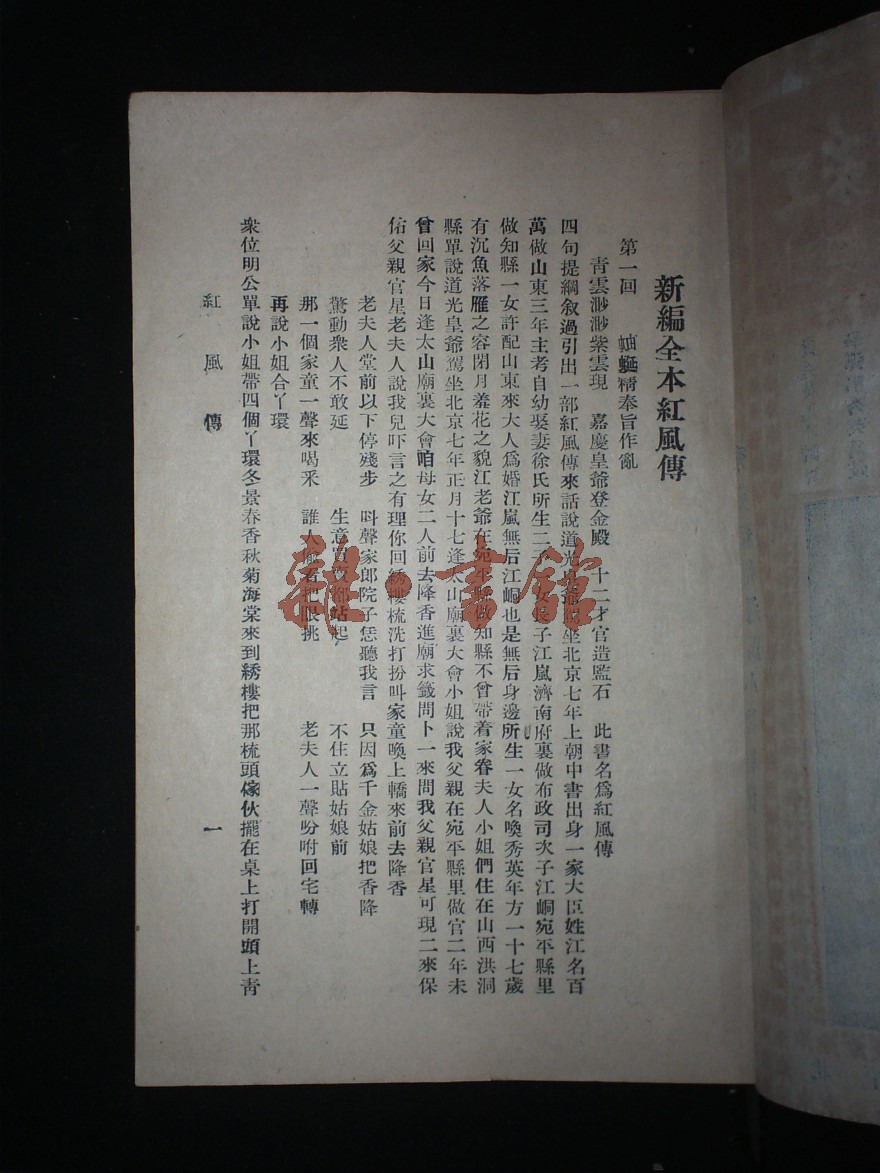 新編全本紅風傳
第一回 蚰蜒精奉旨作亂
青雲渺渺紫雲現 嘉慶皇爺登金殿 十二才官造監石 此書名爲紅風傳
四句提綱叙過引出一部紅風傳來話說道光皇爺坐北京七年上朝中書出身一家大臣姓江名百
萬做山東三年主考自幼娶妻徐氏所生二子女長子江嵐濟南府裏做布政司次子江峒宛平縣里
做知縣一女許配山東來大人爲婚江嵐無后江峒也是無后身邊所生一女名喚秀英年方一十七歲
有沉魚落雁之容閉月羞花之貌江老爺在宛平縣做知縣不曾帶着家眷夫人小姐們住在山西洪洞
縣單說道光皇爺駕坐北京七年正月十七逢太山廟裏大會小姐說我父親在宛平縣里做官二年未
曾回家今日逢太山廟裏大會咱母女二人前去降香進廟求籤問卜一來問我父親官星可現二來保
佑父親官星老夫人說我兒吓言之有理你回綉樓梳洗打扮叫家童喚上轎來前去降香
老夫人堂前以下停殘步 呌聲家郎院子恁聽我言 只因爲千金姑娘把香降
驚動衆人不敢延 生意買賣都站起 不住立貼姑娘前
那一個家童一聲來喝釆 誰人把眼挑 老夫人一聲吩咐回宅轉
再說小姐合丫環
衆位明公單說小姐帶四個丫環冬景春香秋菊海棠來到綉樓把那梳頭傢伙擺在桌上打開頭上靑
紅風傳 一
雜·書館